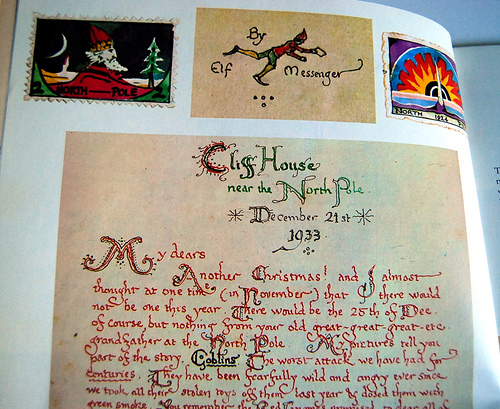 2 NORTH — POLE 2
By
Elf Messenger
NORTH
Cliff House
near the North Pole
December 21st
1933
My dears
Another Christmas! and I almost
thought at one time (in November) that there would
not be one this year. There would be the 25th of Dec.
of course, but nothing from your old great-great-great-etc.
grandfather at the North Pole. My pictures tell you
part of the story. Goblins. The worst attack we have had for
centuries. They have been fearfully wild and angry ever since
we took all their stolen toys off them last year & dosed them with
green smoke. You remember the Red Gnomes promised to